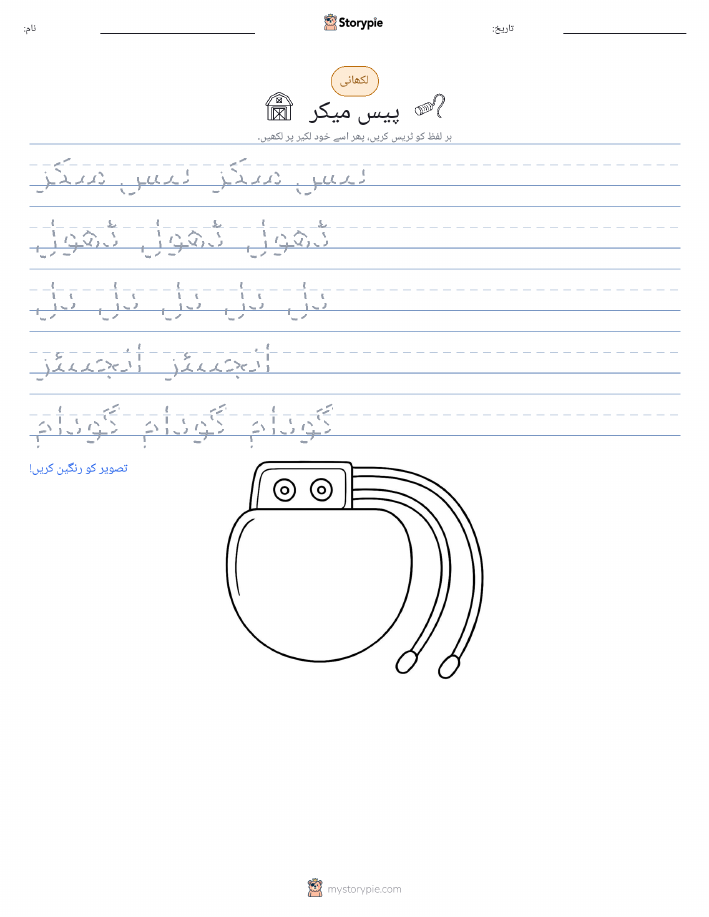 نام:
Storypie
تاریخ:
لکھائی
پیس میکر
ہر لفظ کو ٹریس کریں، پھر اسے خود لکیر پر لکھیں۔
پیس میکر پیس میکر
ڈھول ڈھول ڈھول
دل دل دل دل دل
انجینئر انجینئر
گودام گودام گودام
تصویر کو رنگین کریں!
mystorypie.com